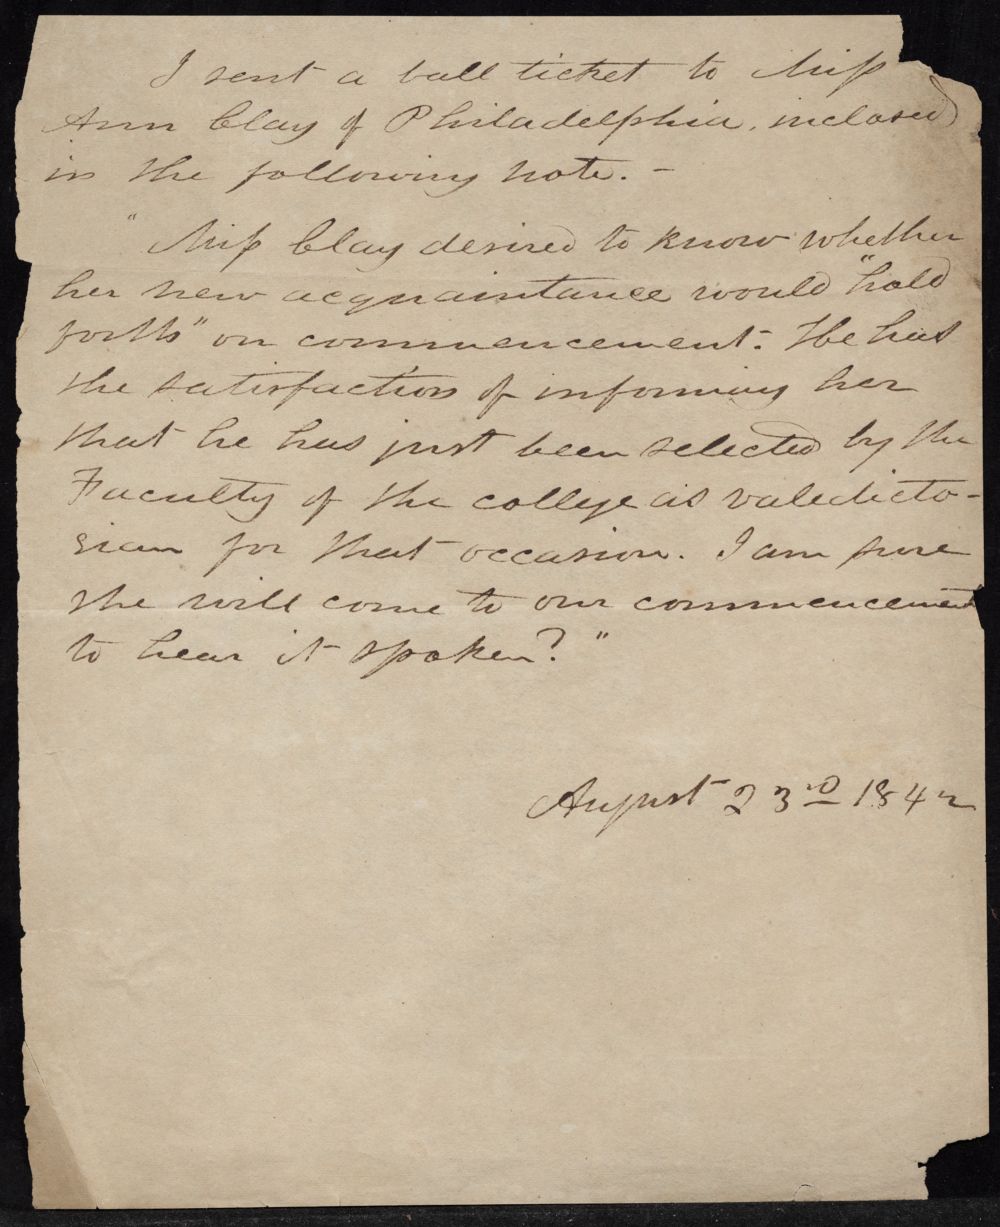 I sent a ball ticket to Miss
Ann Clay of Philadelphia, inclosed
in the following note. -
"Miss Clay desired to know whether
her new acquaintance would "hold
forth" on commencement. He has
the satisfaction of informing her
that he has just been selected by the
Faculty of the college as valedicto-
rian for that occasion. I am sure
she will come to our commencement
to hear it spoken?"
August 23rd 1842